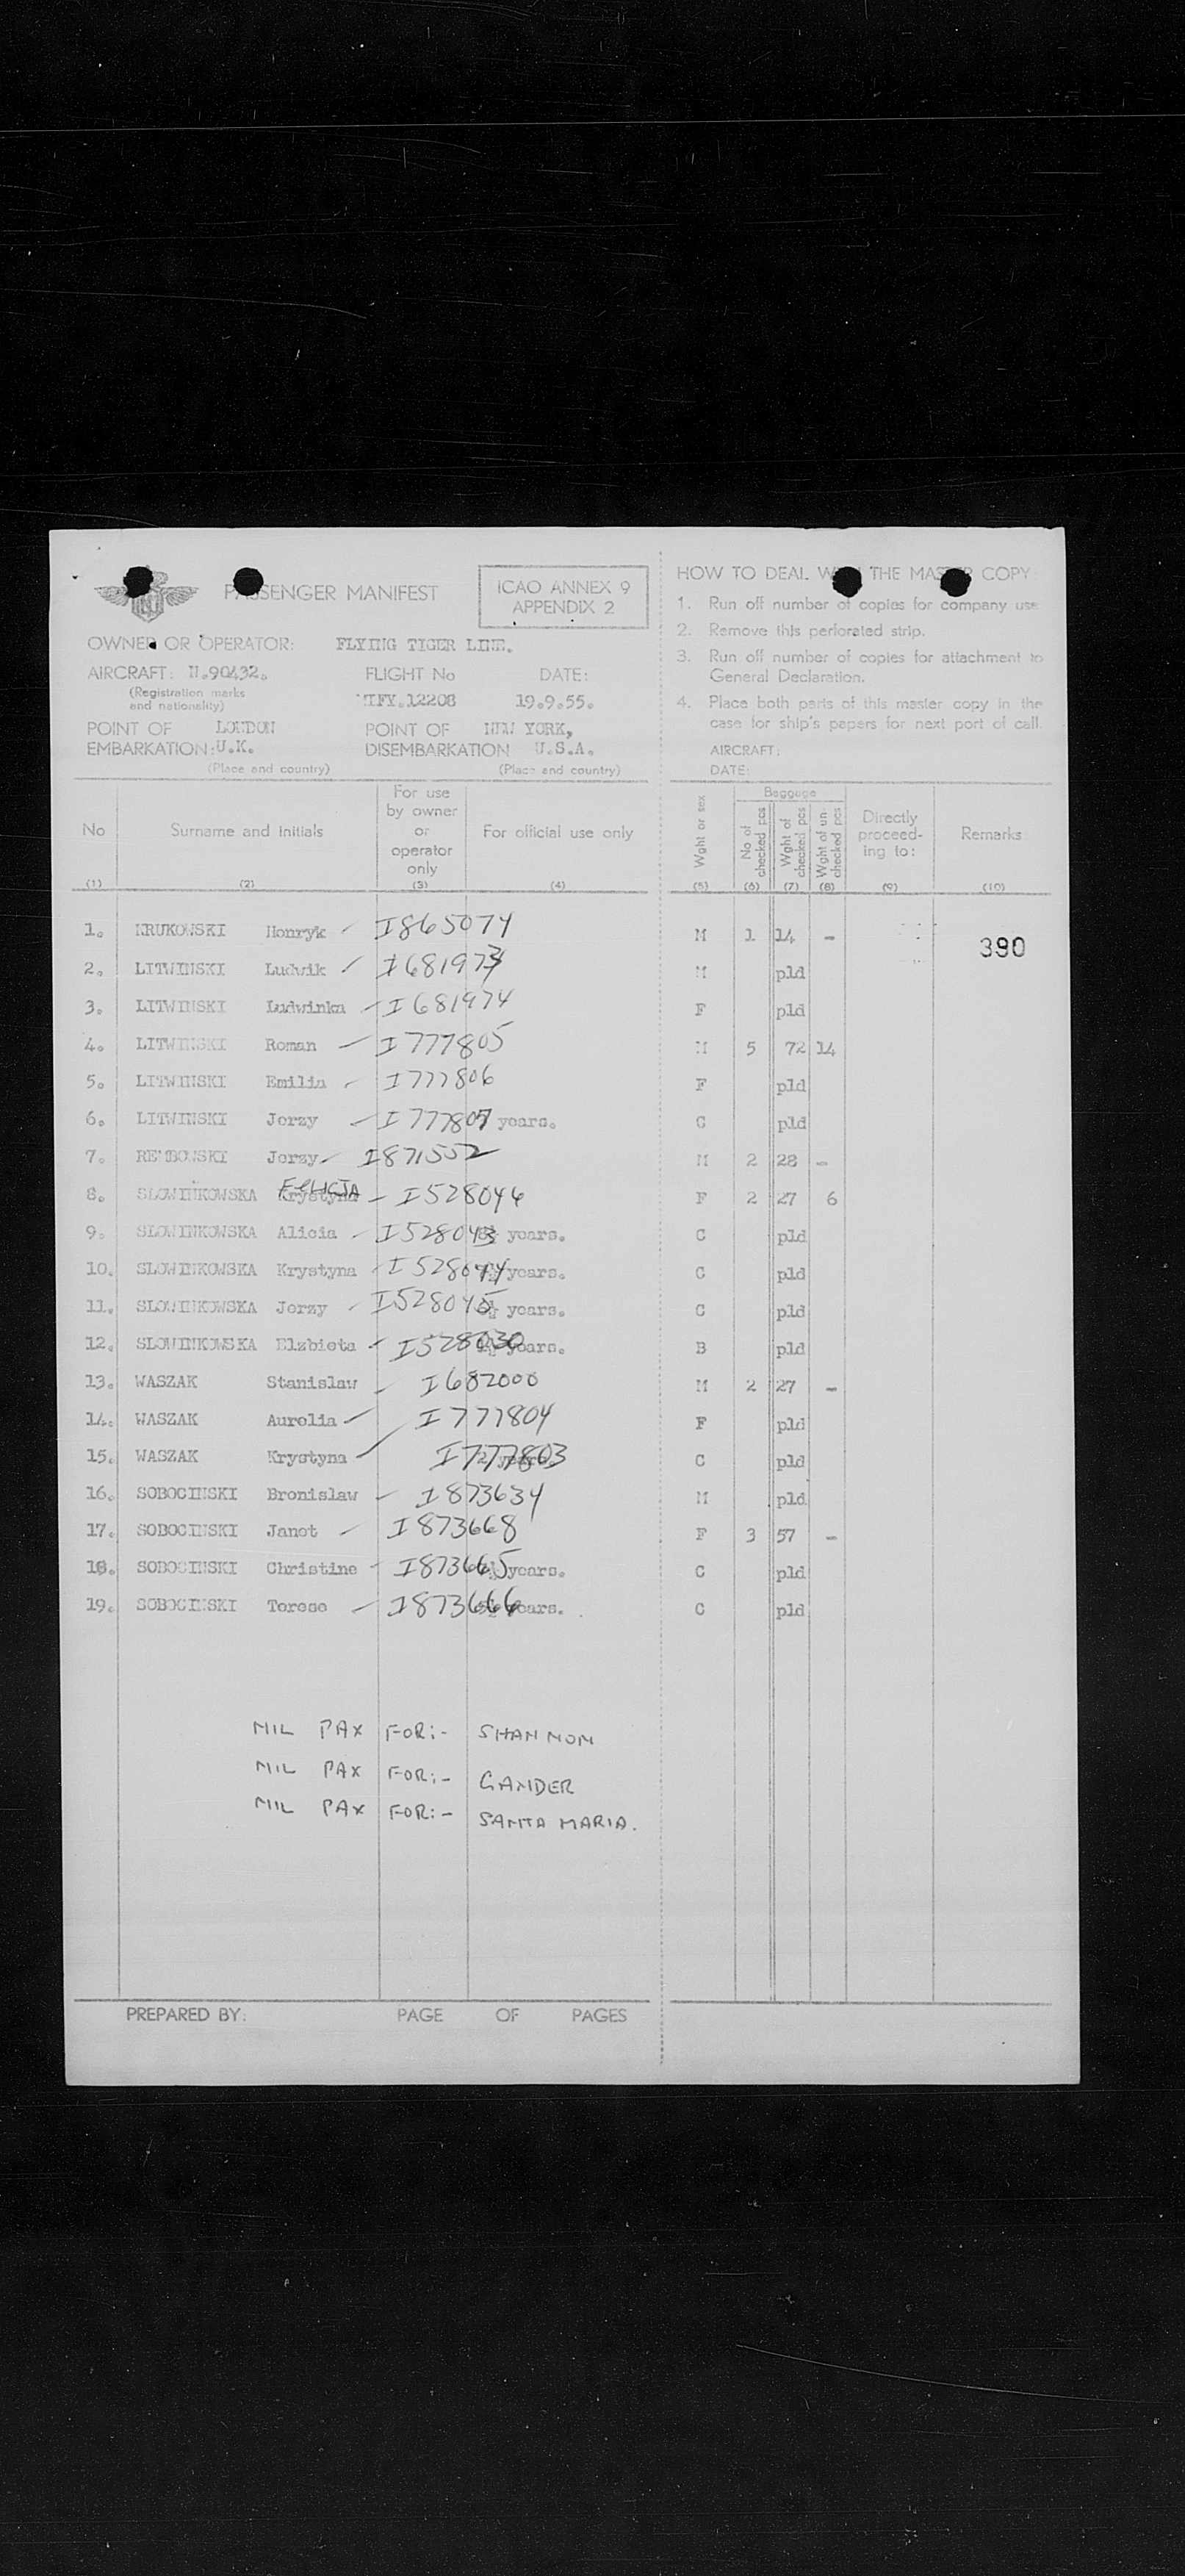 PASSENGER MANIFEST
ICAO ANNEX 9
APPENDIX 2
OWNER OR OPERATOR: FLYING TIGER LINE.
AIRCRAFT: N.90432. FLIGHT No DATE:
(Registration marks and nationality) 12208 19.9.55.
POINT OF LONDON POINT OF NEW YORK,
EMBARKATION: U.K. DISEMBARKATION U.S.A.
(Place and country) (Place and country)
HOW TO DEAL THE COPY
1. Run off number of copies for company use
2. Remove this perforated strip.
3. Run off number of copies for attachment to
General Declaration.
4. Place both parts of this master copy in the
case for ship's papers for next port of call.
AIRCRAFT:
DATE:
No Surname and Initials For use by owner or operator only For official use only Wght or sex Baggage No of checked pcs Wght of checked pcs Wght of un-checked pcs Directly proceed-ing to: Remarks
(1) (2) (3) (4) (5) (6) (7) (8) (9) (10)
1. KRUKOWSKI Henryk I865074 M 1 14 - 390
2. LITWINSKI Ludwik I681973 M pld
3. LITWINSKI Ludwinka I681974 F pld
4. LITWINSKI Roman I777805 M 5 72 14
5. LITWINSKI Emilia I777806 F pld
6. LITWINSKI Jerzy I777807 years. C pld
7. REMBOWSKI Jerzy I871552 M 2 28 -
8. SLOWINKOWSKA Krystyna FELICJA I528046 F 2 27 6
9. SLOWINKOWSKA Alicia I528043 years. C pld
10. SLOWINKOWSKA Krystyna I528044 years. C pld
11. SLOWINKOWSKA Jerzy I528045 years. C pld
12. SLOWINKOWSKA Elzbieta I528030 years. B pld
13. WASZAK Stanislaw I682000 M 2 27 -
14. WASZAK Aurelia I777804 F pld
15. WASZAK Krystyna I777803 C pld
16. SOBOCINSKI Bronislaw I873634 M pld
17. SOBOCINSKI Janet I873668 F 3 57 -
18. SOBOCINSKI Christine I873665 years. C pld
19. SOBOCINSKI Terese I873666 years. C pld
MIL PAX FOR:- SHANNON
MIL PAX FOR:- GANDER
MIL PAX FOR:- SANTA MARIA.
PREPARED BY: PAGE OF PAGES